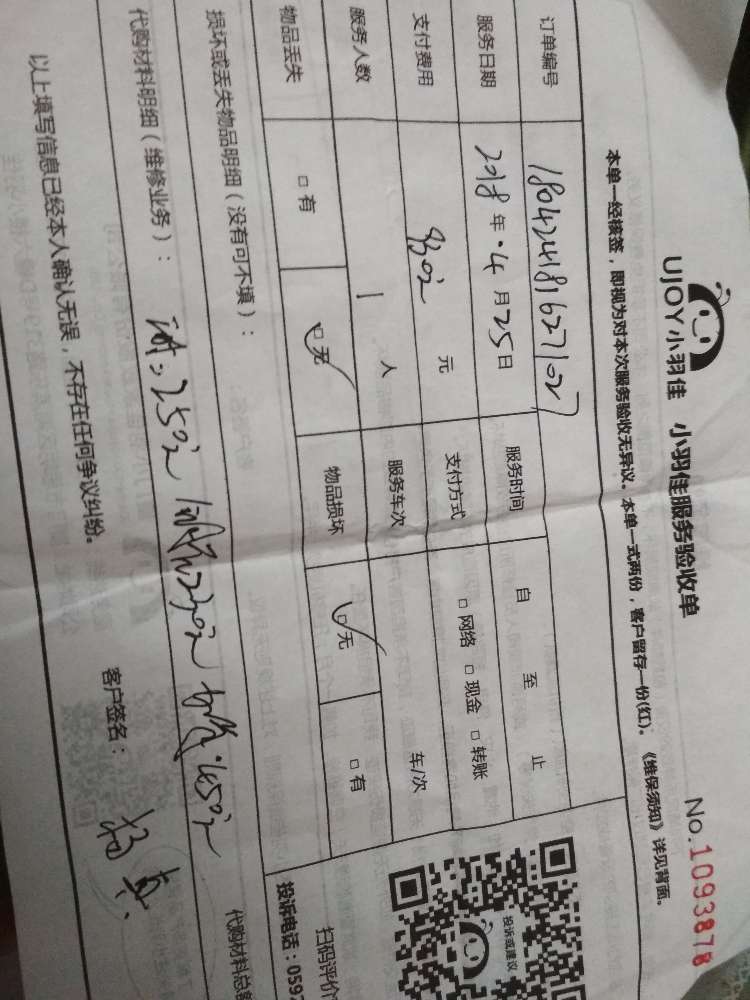 UJOY小羽佳 小羽佳服务验收单
No.1093878
本单一经核签，即视为对本次服务验收无异议。本单一式两份，客户留存一份(红)。《维保须知》详见背面。
订单编号 180424181627107
服务日期 2018年·4月25日 服务时间 自 至 止
支付费用 元 支付方式 □网络 □现金 □转账
服务人数 1 人 服务车次 车/次
物品丢失 □有 □无 物品损坏 □无 □有
投诉或建议
扫码评价
投诉电话：059
损坏或丢失物品明细（没有可不填）：
代购材料明细（维修业务）：
代购材料总
以上填写信息已经本人确认无误，不存在任何争议纠纷。
客户签名：